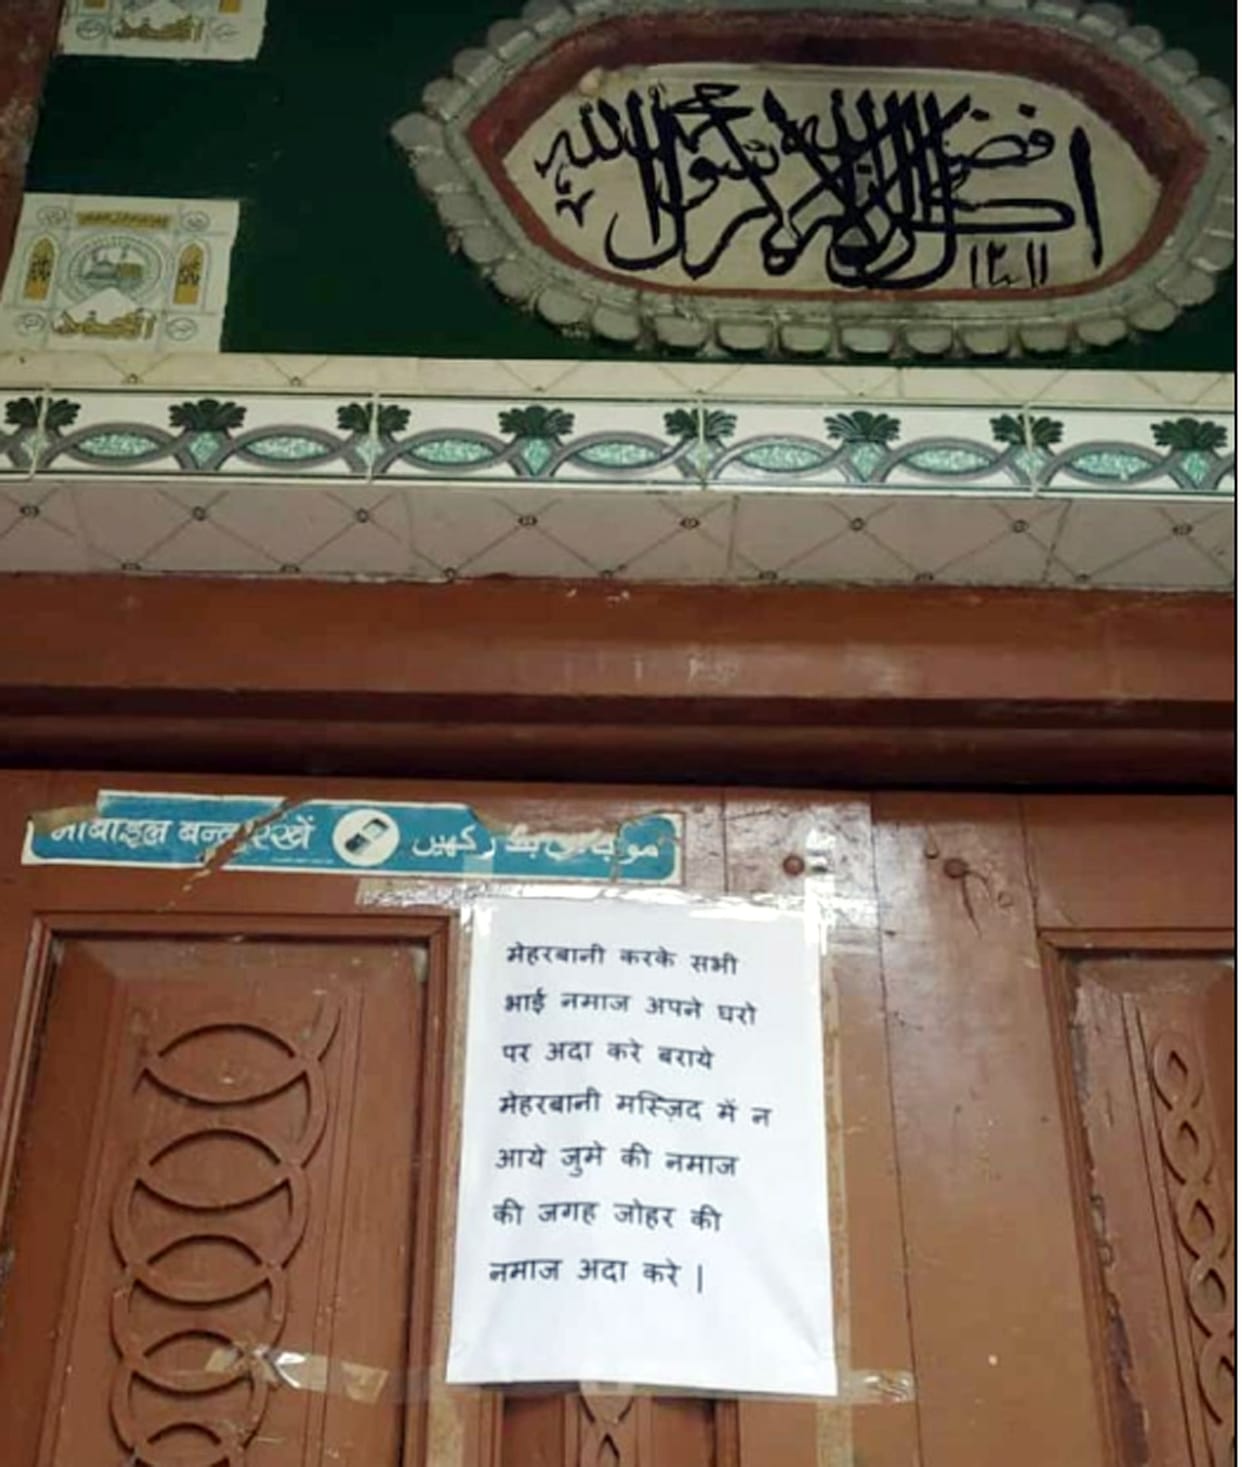 افضل الذکر لا اله الا الله محمد رسول الله
मोबाइल बन्द रखें
موبائل بند رکھیں
मेहरबानी करके सभी
भाई नमाज अपने घरो
पर अदा करे बराये
मेहरबानी मस्ज़िद में न
आये जुमे की नमाज
की जगह जोहर की
नमाज अदा करे |